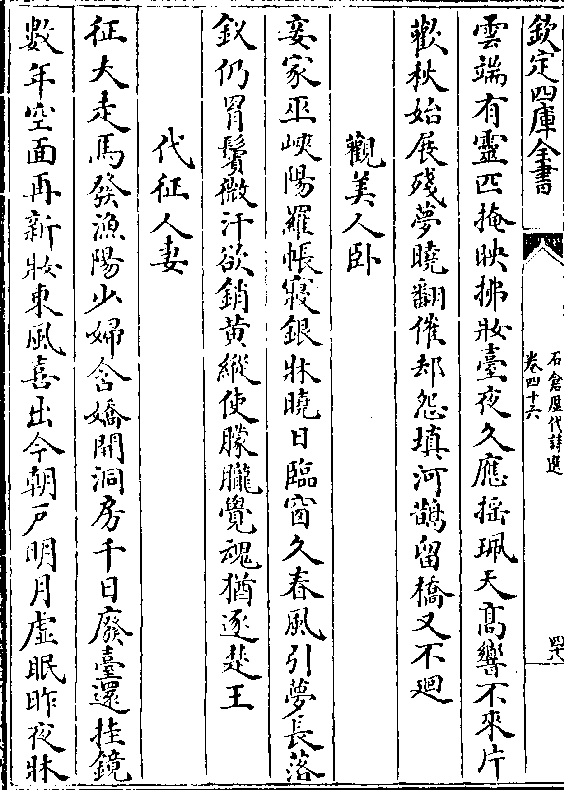 欽定四庫全書
石倉歷代詩選
卷四十六
四八
雲端有靈匹掩映拂妝臺夜久應摇珮天髙響不來片
歡秋始展殘夢曉翻催却怨填河鵲留橋又不廻
觀美人卧
妾家巫峽陽羅帳寢銀牀曉日臨窗久春風引夢長落
釵仍罥鬢微汗欲銷黄縱使朦朧覺魂猶逐楚王
代征人妻
征夫走馬發漁陽少婦含嬌開洞房千日廢臺還挂鏡
數年空面再新妝東風喜出今朝戸明月虚眠昨夜牀